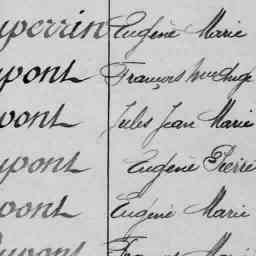 uperrin Eugène Marie
upont François
pont Jules Jean Marie
upont Eugène Pierre
pont Eugène Marie
upont